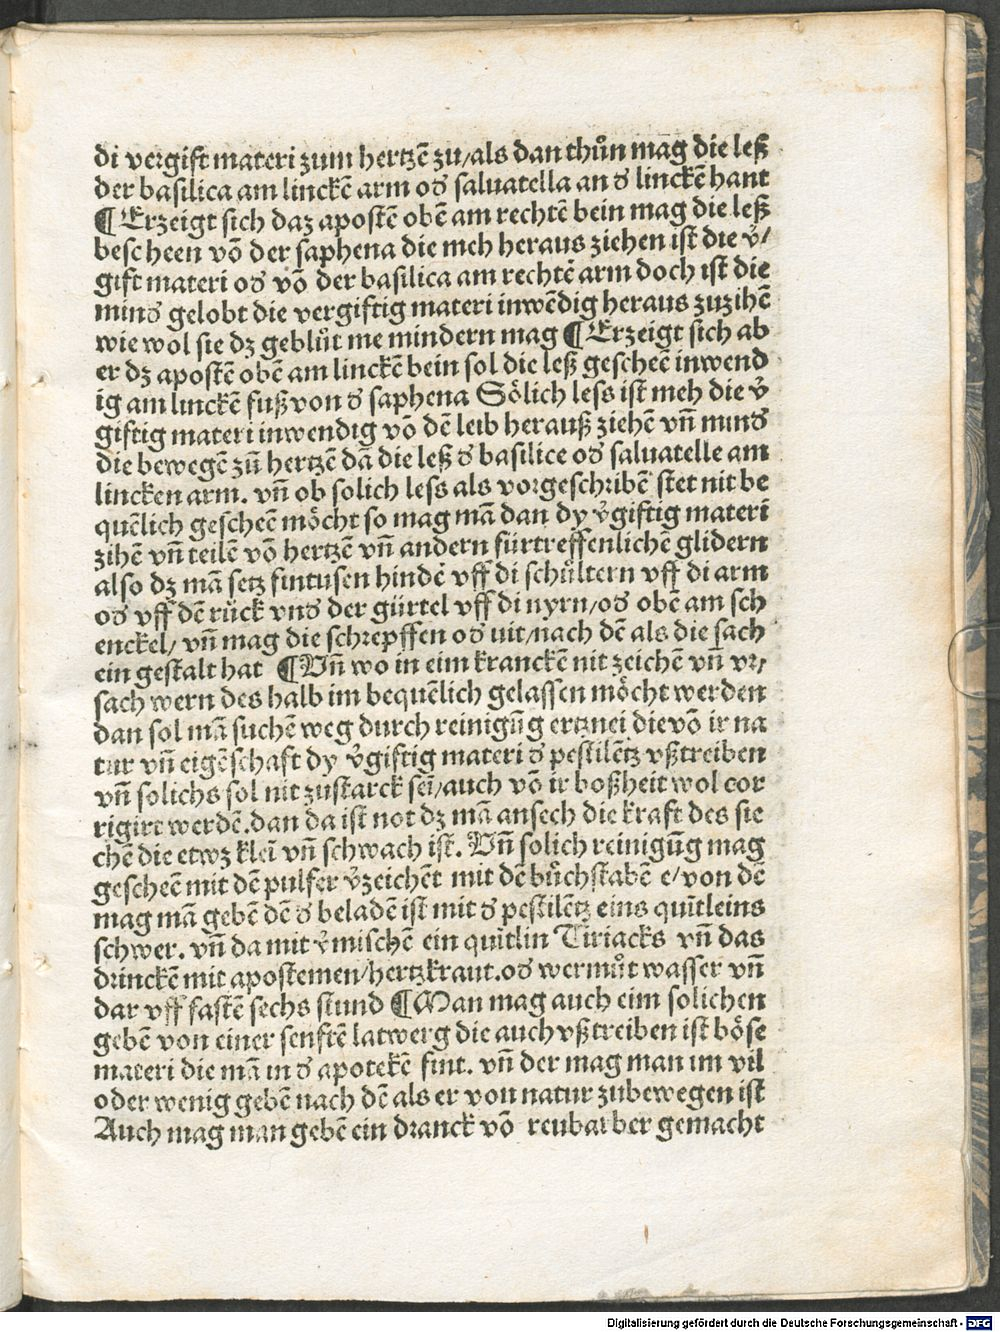 di vergift materi zum hertzē zu/als dan thůn mag die leß
der basilica am linckē arm oď saluatella an ď linckē hant
¶ Erzeigt sich daz apostē obē am rechtē bein mag die leß
bescheen vō der saphena die meh heraus ziehen ist die v̉/
gift materi oď vō der basilica am rechtē arm doch ist die
minď gelobt die vergiftig materi inwēdig heraus zuzihē
wie wol sie dz geblůt me mindern mag ¶ Erzeigt sich ab
er dz apostē obē am linckē bein sol die leß gescheē inwend
ig am linckē fuß von ď saphena Sőlich less ist meh die v̉
giftig materi inwendig vō dē leib herauß ziehē vñ minď
die bewegē zū hertzē dā die leß ď basilice oď saluatelle am
lincken arm. vñ ob solich less als vorgeschribē stet nit be
quēlich gescheē möcht so mag mā dan dy v̉giftig materi
zihē vñ teilē vō hertzē vñ andern fürtreffenlichē glidern
also dz mā setz fintusen hindē vff di schůltern vff di arm
oď vff dē rück vnď der gürtel vff di nyrn/oď obē am sch
enckel/ vñ mag die schrepffen oď nit/nach dē als die sach
ein gestalt hat ¶ Vñ wo in eim kranckē nit zeichē vñ vr/
sach wern des halb im bequēlich gelassen möcht werden
dan sol mā suchē weg durch reinigūg ertznei die vō ir na
tur vñ eigēschaft dy v̉giftig materi ď pestilētz vßtreiben
vñ solichs sol nit zustarck sei/auch vō ir boßheit wol cor
rigirt werdē.dan da ist not dz mā ansech die kraft des sie
chē die etwz klei vñ schwach ist. Vñ solich reinigūg mag
gescheē mit dē pulfer v̉zeichēt mit dē bůchstabē e/von dē
mag mā gebē dē ď beladē ist mit ď pestilētz eins quītleins
schwer. vñ da mit v̉mischē ein quītlin Tiriacks vñ das
drinckē mit apostemen/hertzkraut.oď wermůt wasser vñ
dar vff fastē sechs stund ¶ Man mag auch eim solichen
gebē von einer senftē latwerg die auch vßtreiben ist böse
materi die mā in ď apotekē fint. vñ der mag man im vil
oder wenig gebē nach dē als er von natur zubewegen ist
Auch mag man gebē ein dranck vō reubarber gemacht
Digitalisierung gefördert durch die Deutsche Forschungsgemeinschaft - DFG